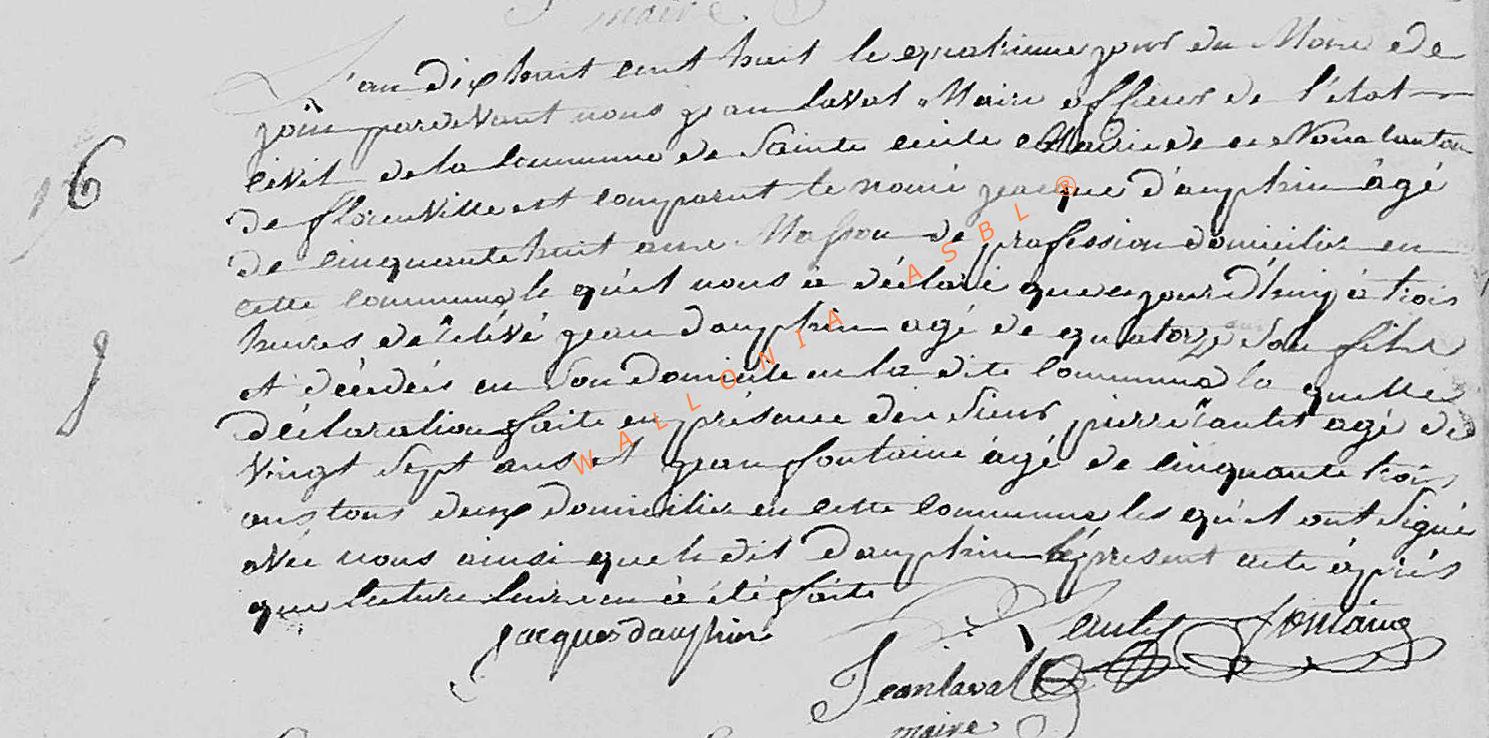 maire
L'an dix huit cent huit le quatrieme jour du Mois de
join pardevant nous jean laval Maire officier de l'état
civil de la Commune de Sainte cecile Mairie de ce Nom Canton
16
de florenville est comparut le nomé jacque d'auphin âgé
de cinquante huit ans Masson de profession domicilié en
cette commune le quél nous à déclaré que ce jourd'huy à trois
heures de rélévé jean dauphin agé de quatorze ans Son fils
est décédés en Son Domicile en la dite Commune la quelle
déclaration faite en présence des Sieur pierre lambert agé de
vingt Sept ans et jean fontaine âgé de cinquante trois
ans tous deux domicilies en cette commune les quél ont Signé
avéc nous ainsi que le dit dauphin le présent acte àprés
que lecture leur en à été faite
jacques dauphin
fontaine
Jean laval
maire
WALLONIA ASBL ®